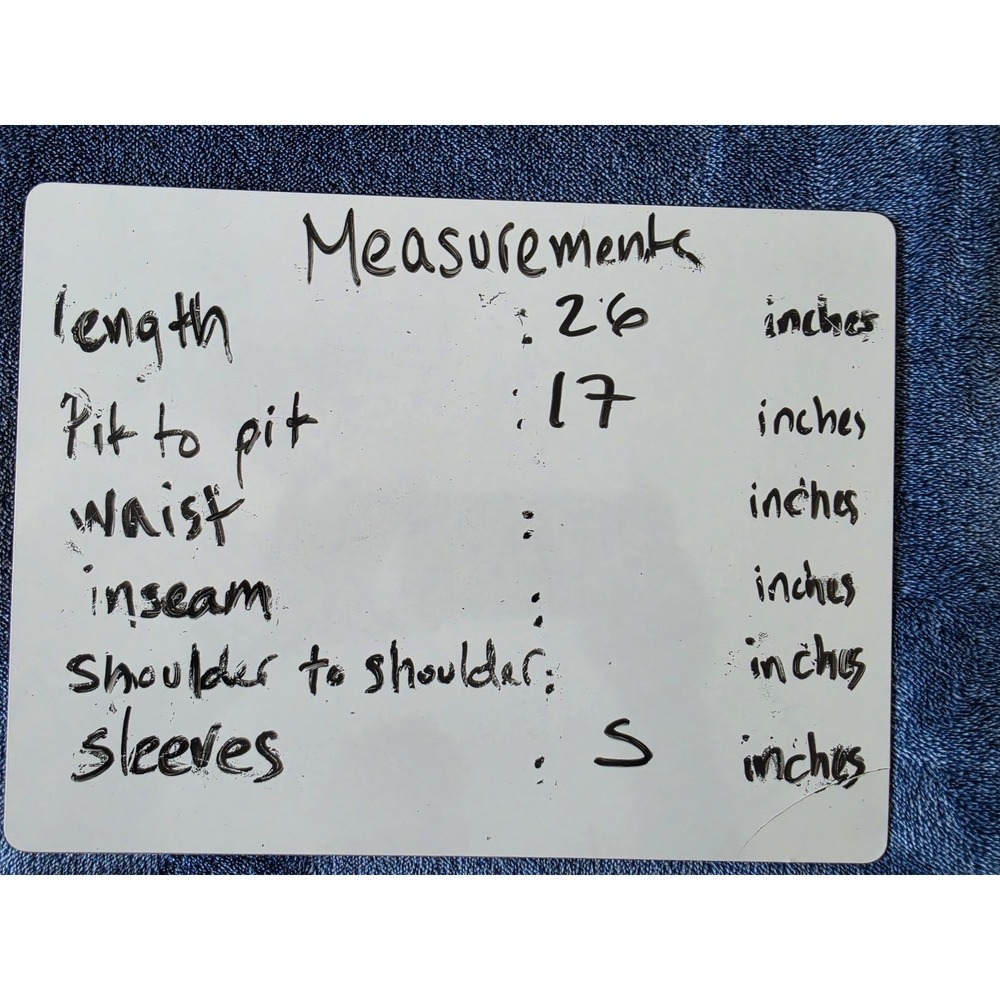 Measurements
length : 26 inches
Pit to pit : 17 inches
waist : inches
inseam : inches
shoulder to shoulder : inches
sleeves : 5 inches